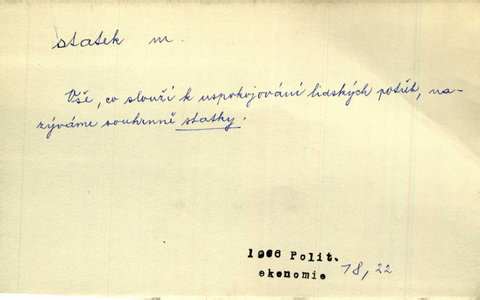 statek m.
Vše, co slouží k uspokojování lidských potřeb, na-
zýváme souhrnně statky.
1966 Polit.
ekonomie 18, 22